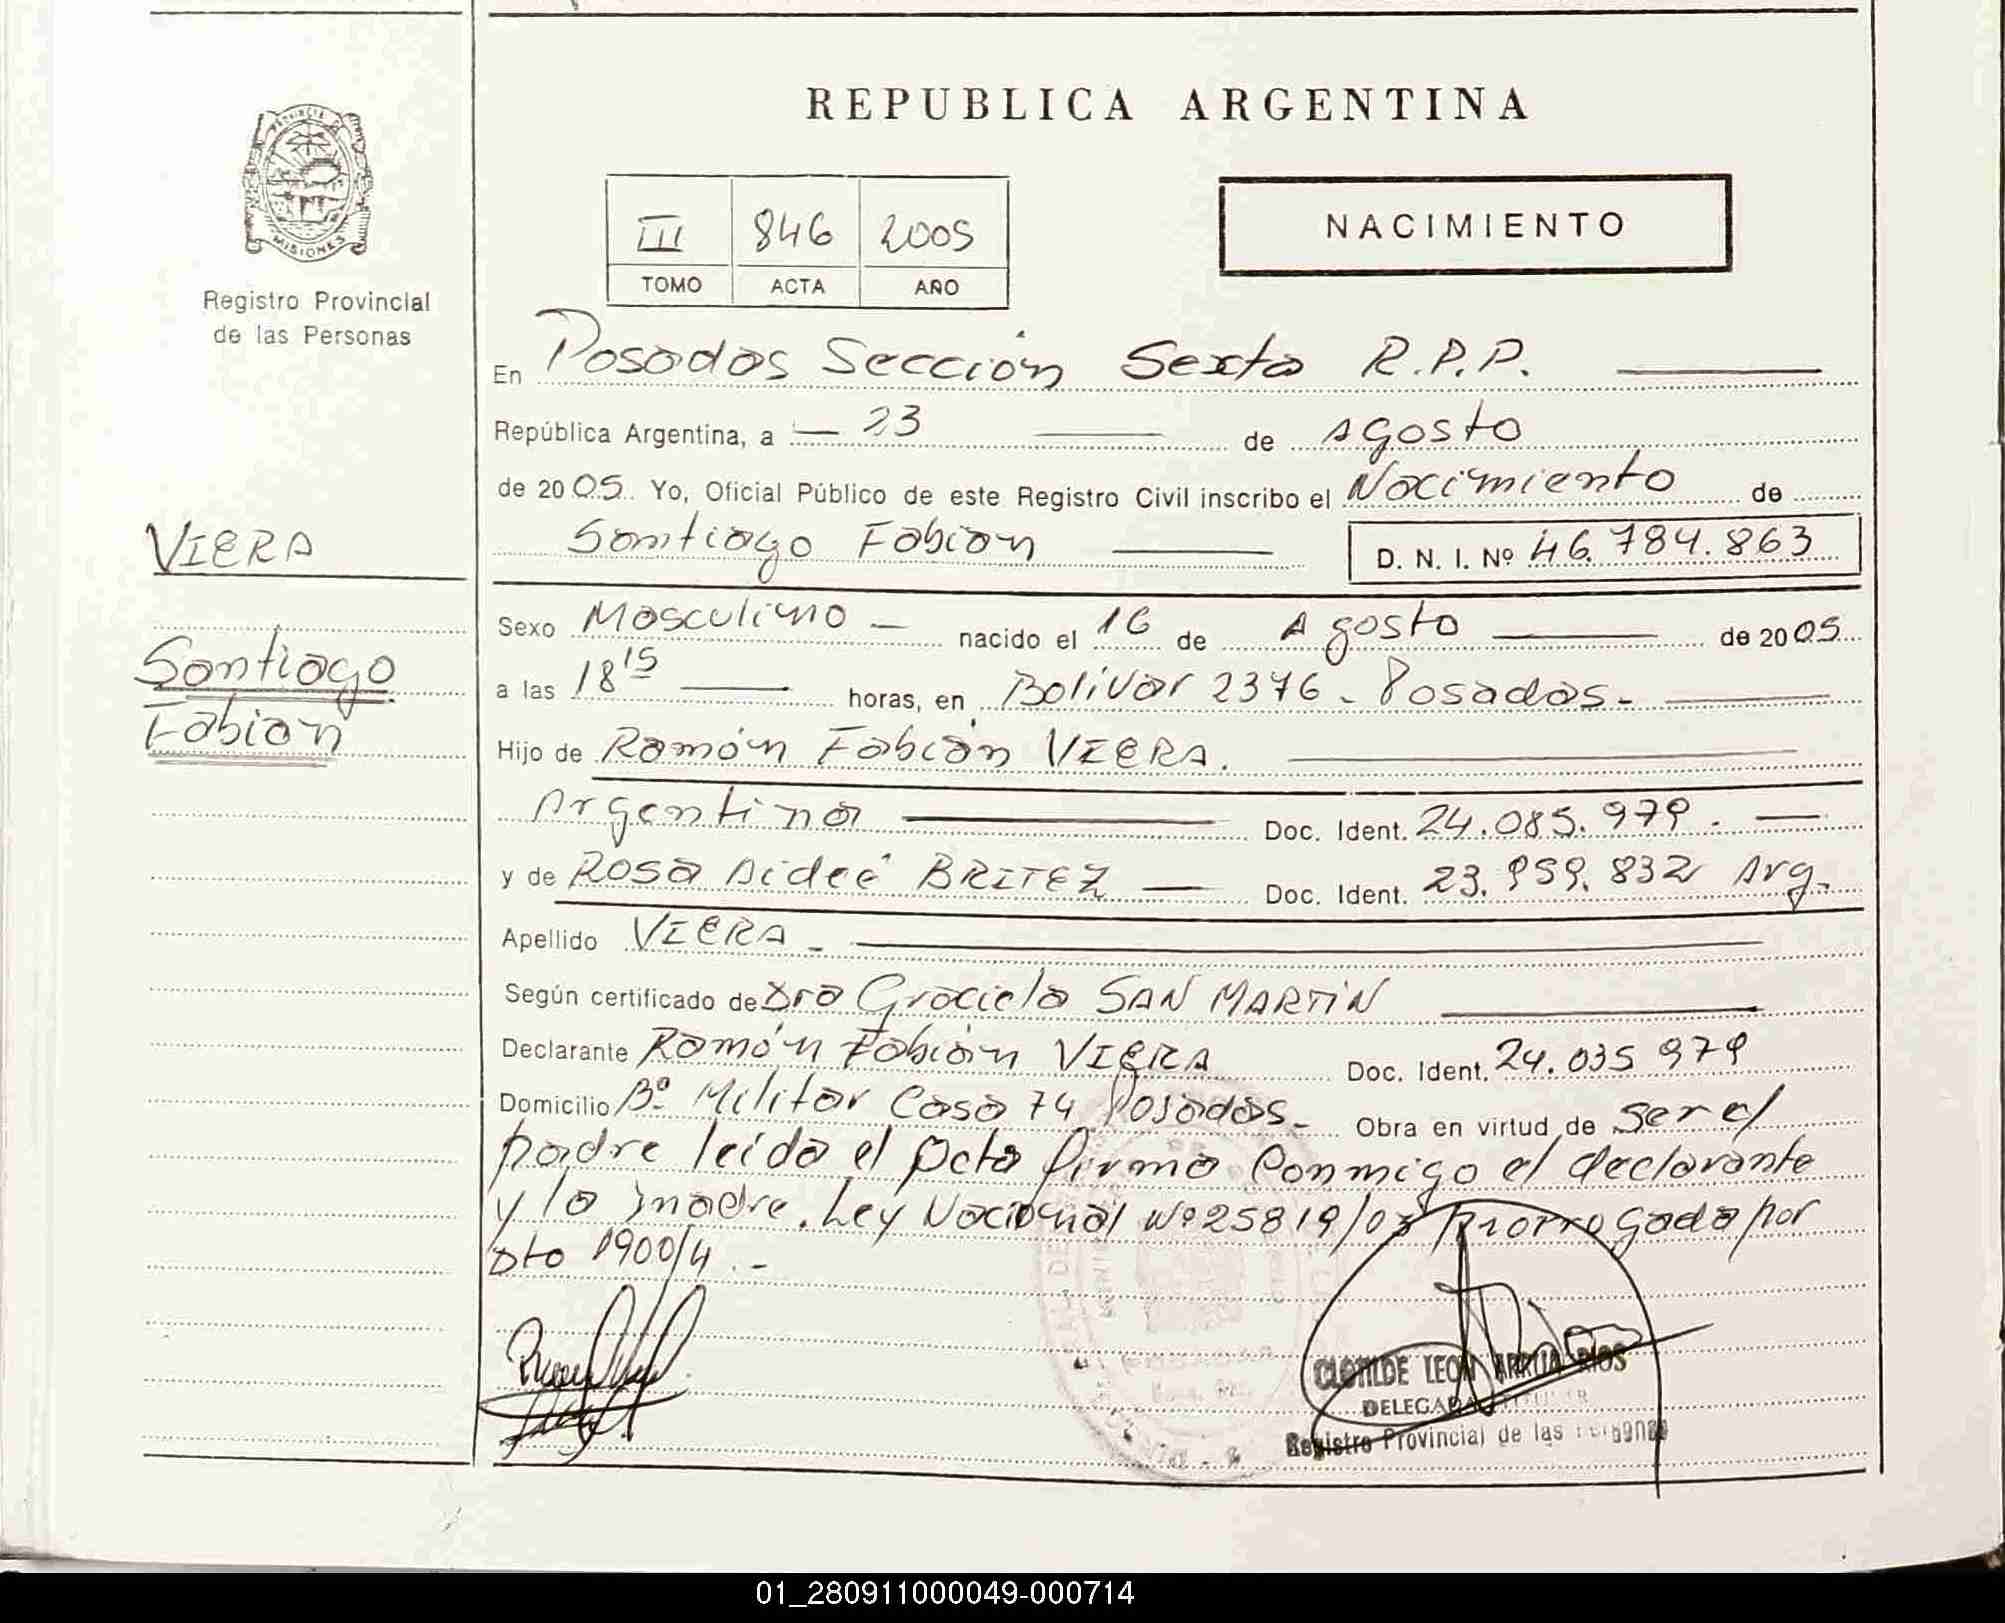 PROVINCIA DE
MISIONES
Registro Provincial
de las Personas
VIERA
Santiago
Fabian
REPUBLICA ARGENTINA
III 846 2005
TOMO ACTA AÑO
NACIMIENTO
En Posadas Sección Sexta R.P.P.
República Argentina, a 23 de Agosto
de 2005. Yo, Oficial Público de este Registro Civil inscribo el Nacimiento de
Santiago Fabian D. N. I. Nº 46.784.863
Sexo Masculino nacido el 16 de Agosto de 2005
a las 18 15 horas, en Bolivar 2376 - Posadas.-
Hijo de Ramón Fabián VIERA.
Argentina Doc. Ident. 24.085.979.
y de ROSA Aideé BRITEZ Doc. Ident. 23.959.832 Arg.
Apellido VIERA -
Según certificado de Dra Graciela SAN MARTIN
Declarante Ramón Fabián VIERA Doc. Ident. 24.035 979
Domicilio Bº Militar Casa 74 Posadas.- Obra en virtud de ser el
padre leída el Acta firma conmigo el declarante
y la madre. Ley Nacional Nº 25819/03 Prorrogada por
Dto 1900/4 .-
CLOTILDE LEON ARRUA RIOS
DELEGADA TITULAR
Registro Provincial de las Personas
01_280911000049-000714